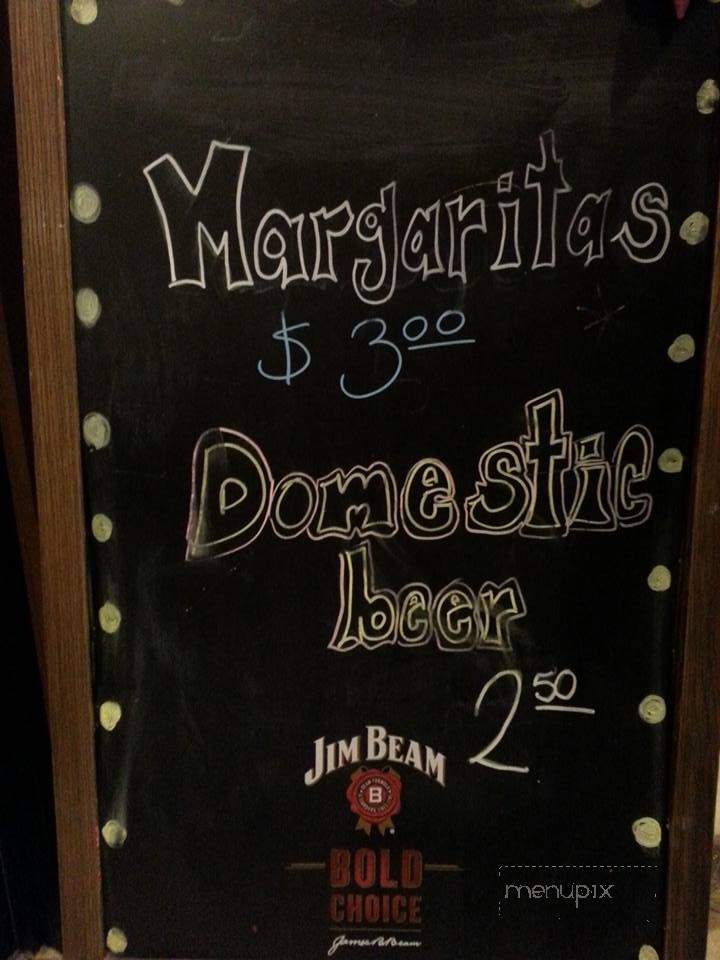 Margaritas
$ 3.00
Domestic
beer
2.50
JIM BEAM
B
BOLD
CHOICE
James B. Beam
menupix